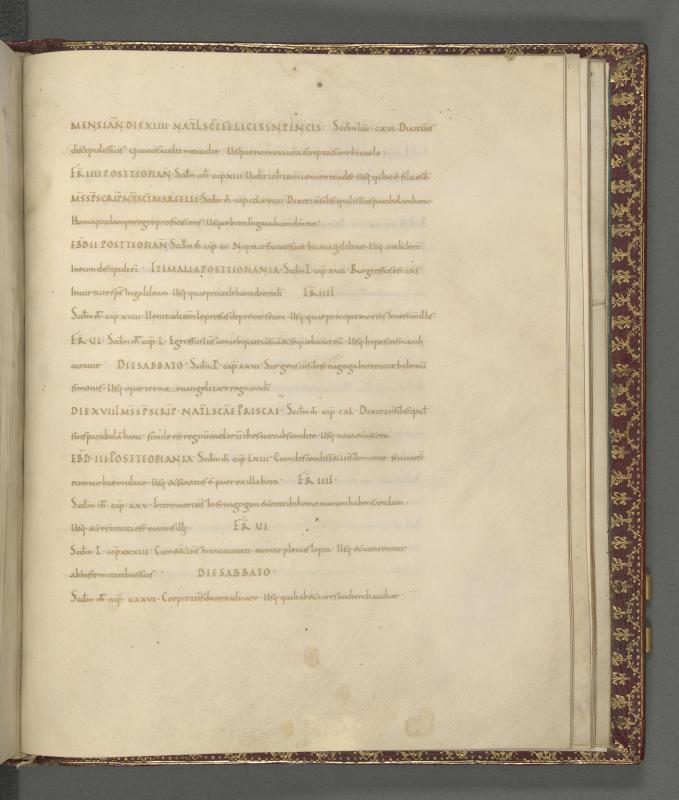 MENSIAN̄ DIE XIIII NAT̄L SC̄I FELICIS IN PINCIS Scd̄m luc̄ CXVI Dixit ih̄s
discipulis suis Qui uos audit me audit Usque nomina ur̄a scripta sunt in caelo
FR̄ IIII POST TEOPIAN̄ Scd̄m ioh̄ cap̄ XIII Uidit ioh̄ ih̄m uenientem ad se Usq; hic ē filius dī
M̄S S̄P SCRIP̄ NT̄ SC̄I MARCELLI Scd̄m mt̄ cap̄ Dixit ih̄s discipulis suis parabolam hanc
Homo quidam peregre proficiscens Usque intra in gaudium dn̄i tui
EBD̄ II POST TEOPIAN̄ Scd̄m ioh̄ cap̄ Nuptiae factae sunt in cana galileae Usq; crediderunt
in eum discipuli eī ITEM ALIA POST TEOPIANIA Scd̄m L cap̄ XVII Regressus est ih̄s
in uirtute sp̄s in galileam Usq; quae procedebant de ore dī FR̄ IIII
Scd̄m mt̄ cap̄ XVIII Uenit ad ih̄m leprosus deprecans eum Usq; quae praecepit moyses in testim̄ illis
FR̄ UI Scd̄m mc̄ cap̄ L Egressus ih̄s uenit in patriā suā et sequebantur eū Usq; inpositis manib;
curauit DIE SABBATO Scd̄m L cap̄ XXVI Surgens ih̄s de synagoga introiuit in domū
simonis Usq; oportet me euangelizare regnum dī
DIE XVIII M̄S S̄P SCRIP̄ NAT̄L SCAE PRISCAE Scd̄m mt̄ cap̄ CXL Dixit ih̄s discipul̄
suis parabolā hanc simile est regnū caelorū thesauro abscondito Usq; noua et uetera
EBD̄ III POST TEOPIANIA Scd̄m mt̄ cap̄ LXIII Cum descendisset ih̄s de monte secutae st̄
eum turbae multae Usq; et sanatus ē puer ex illa hora FR̄ IIII
Scd̄m mt̄ cap̄ XXV Introiuit ih̄s in synagogam et erat ibi homo manum habens aridam
Usq; et restituta est manus illi FR̄ UI
Scd̄m L cap̄ XXXIII Cum esset ih̄s in una ciuitate et ecce uir plenus lepra Usq; et curarentur
ab infirmitatibus suis DIE SABBATO
Scd̄m mt̄ cap̄ XXXVI Coepit ih̄s docere ad mare Usq; qui habet aures audiendi audiat